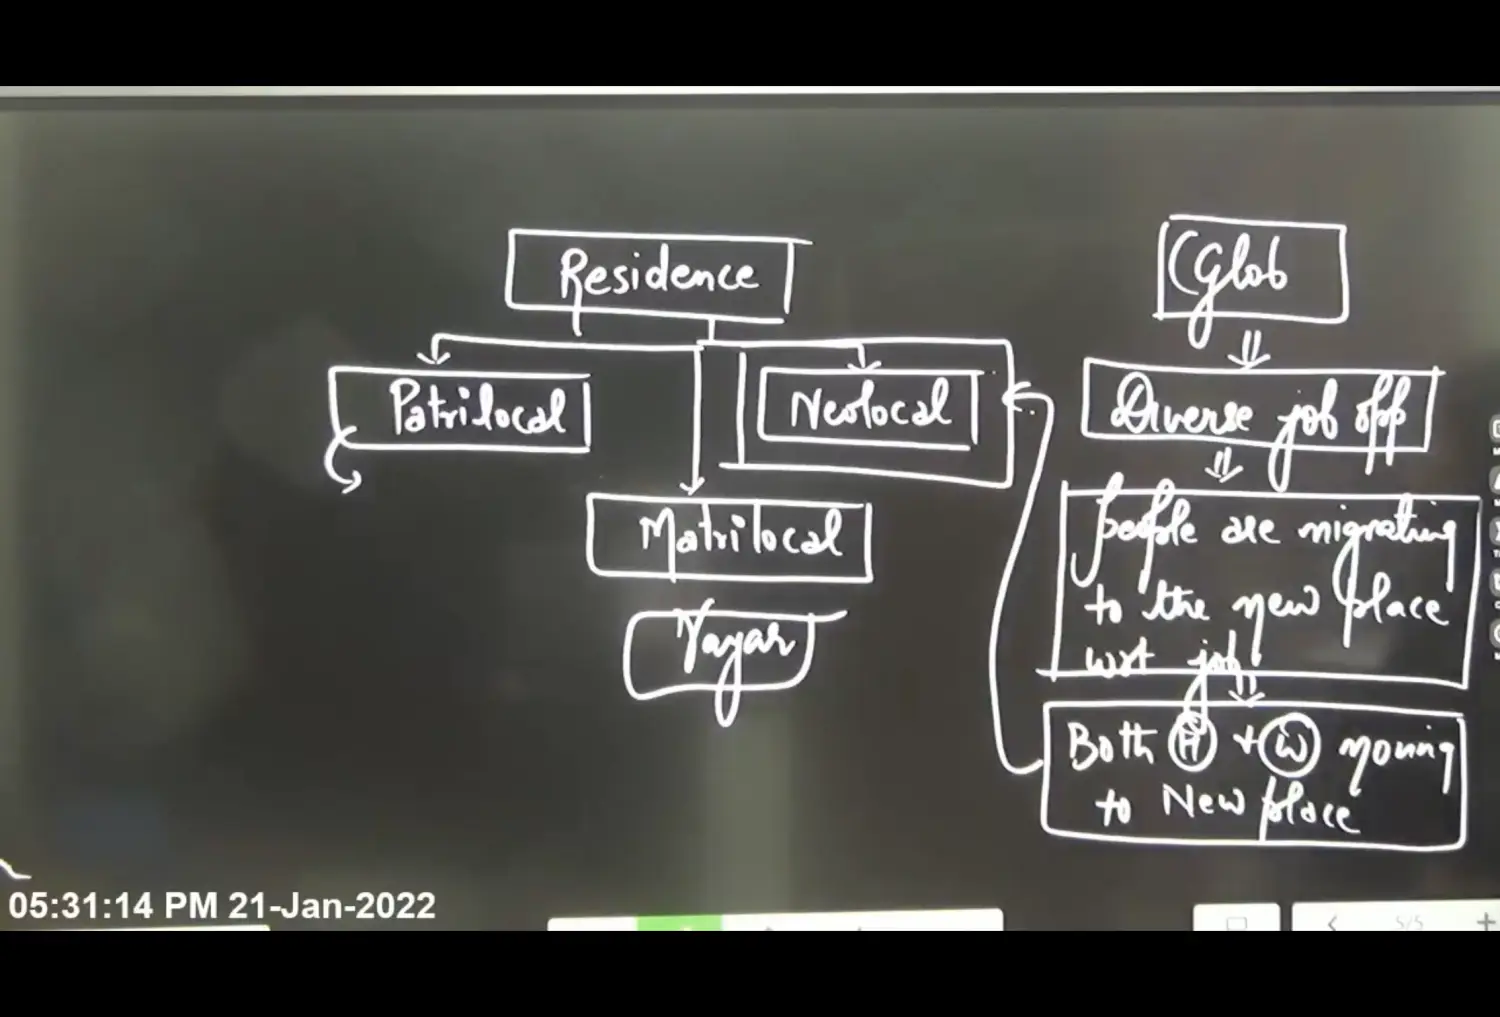 Residence
Patrilocal
Neolocal
Matrilocal
Nayar
Glob
Diverse job opp
people are migrating
to the new place
wrt job
Both H + W moving
to New place
05:31:14 PM 21-Jan-2022
5/5